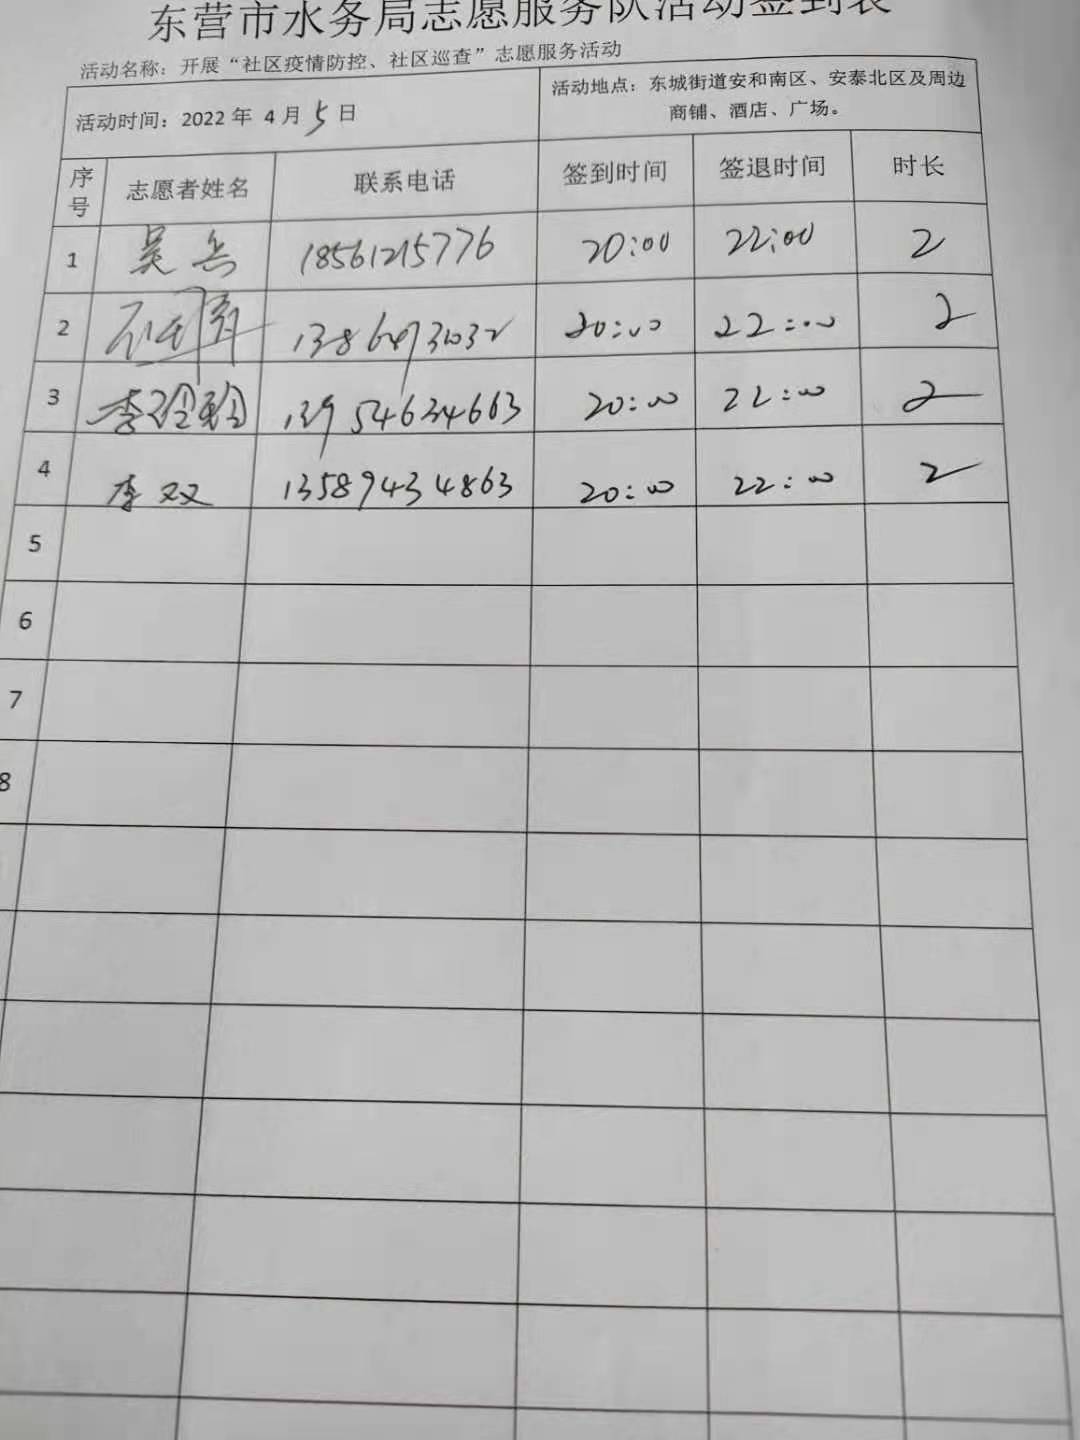 东营市水务局志愿服务队活动签到表
活动名称：开展“社区疫情防控、社区巡查”志愿服务活动
活动时间：2022 年 4 月 5 日
活动地点：东城街道安和南区、安泰北区及周边
商铺、酒店、广场。
序号 志愿者姓名 联系电话 签到时间 签退时间 时长
1 吴兵 18561215776 20:00 22:00 2
2 20:00 22:00 2
3 李玲玲 13954634663 20:00 22:00 2
4 李双 13589434863 20:00 22:00 2
5
6
7
8